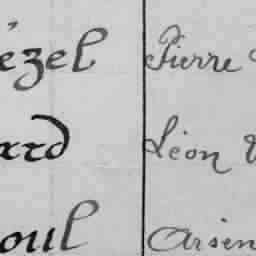 ézel Pierre
ard Léon
oul Arsen